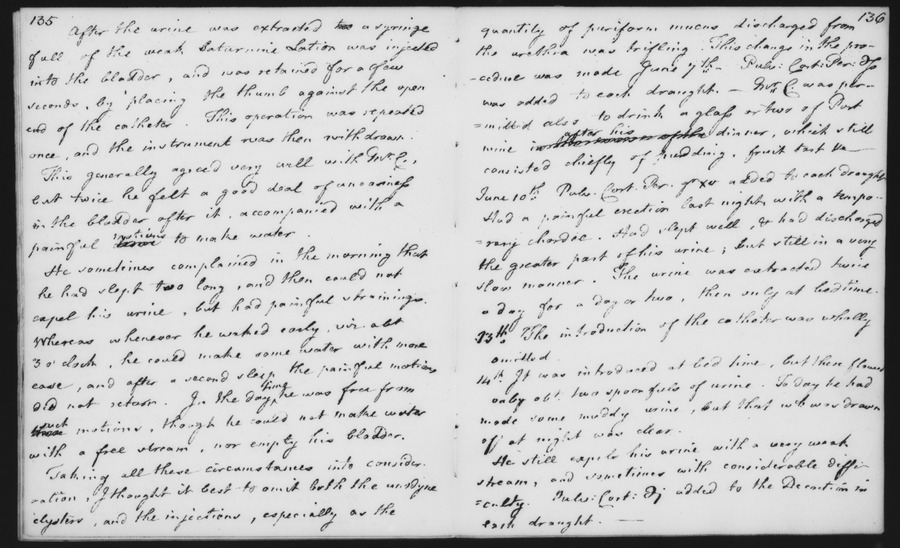 135
After the urine was extracted a syringe
full of the weak Saturnine Lotion was injected
into the bladder, and was retained for a few
seconds, by placing the thumb against the open
end of the catheter. This operation was repeated
once, and the instrument was then withdrawn.
This generally agreed very well with Mr. C.,
but twice he felt a good deal of uneasiness
in the bladder after it, accompanied with a
painful motions to make water.
He sometimes complained in the morning that
he had slept too long, and then could not
expel his urine, but had painful strainings.
Whereas whenever he waked early, viz. abt
3 o'clock, he could make some water with more
ease, and after a second sleep the painful motions
did not return. In the day time he was free from
such motions, though he could not make water
with a free stream, nor empty his bladder.
Taking all these circumstances into consider-
ation, I thought it best to omit both the anodyne
clysters, and the injections, especially as the
136
quantity of puriform mucus discharged from
the urethra was trifling. This change in the pro-
=cedure was made June 7th. Pulv: Cort: Per: ʒss
was added to each draught. — Mr. C. was per-
=mitted also to drink a glass or two of Port
wine after his dinner, which still
consisted chiefly of pudding, fruit tart &c —
June 10th. Pulv. Cort. Per. gr xv added to each draught
Had a painful erection last night with a tempo-
=rary chordee. Had slept well, & had discharged
the greater part of his urine; but still in a very
slow manner. The urine was extracted twice
a day for a day or two, then only at bedtime.
13th. The introduction of the catheter was wholly
omitted.
14th It was introduced at bed time, but then flowed
only abt. two spoonfuls of urine. To day he had
made some muddy urine, but that wch was drawn
off at night was clear.
He still expels his urine with a very weak
stream, and sometimes with considerable diffi-
=culty. Pulv: Cort: ℈j added to the Decoction in
each draught. —